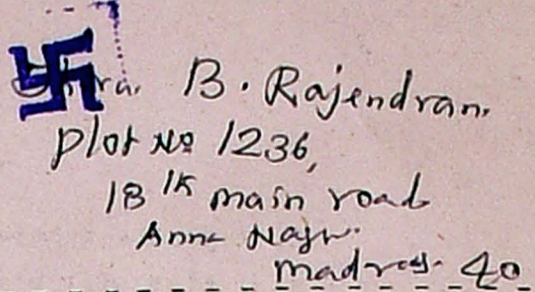 B. Rajendran.
Plot No 1236,
18th main road
Anna Nagar.
Madras. 40